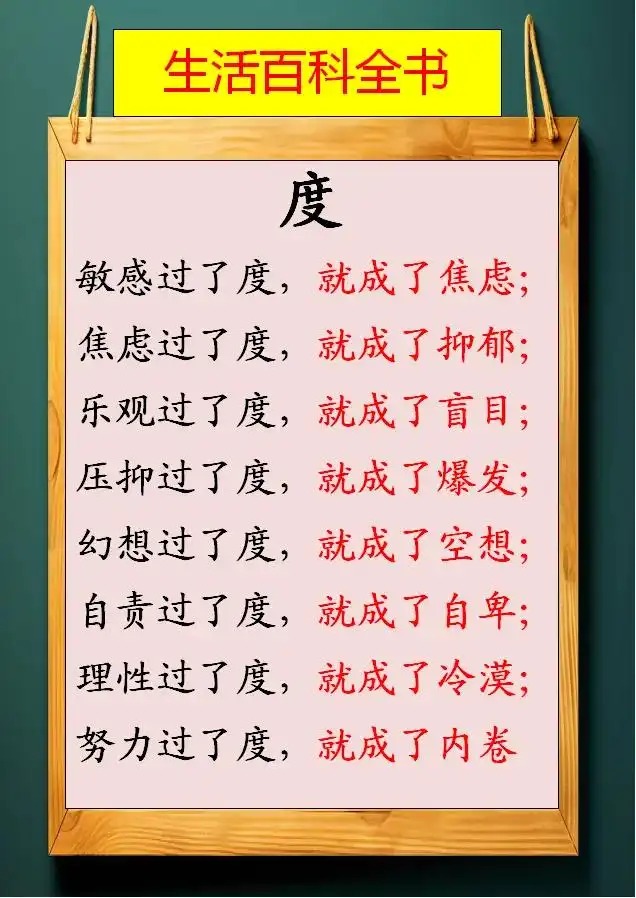 生活百科全书
度
敏感过了度，就成了焦虑；
焦虑过了度，就成了抑郁；
乐观过了度，就成了盲目；
压抑过了度，就成了爆发；
幻想过了度，就成了空想；
自责过了度，就成了自卑；
理性过了度，就成了冷漠；
努力过了度，就成了内卷